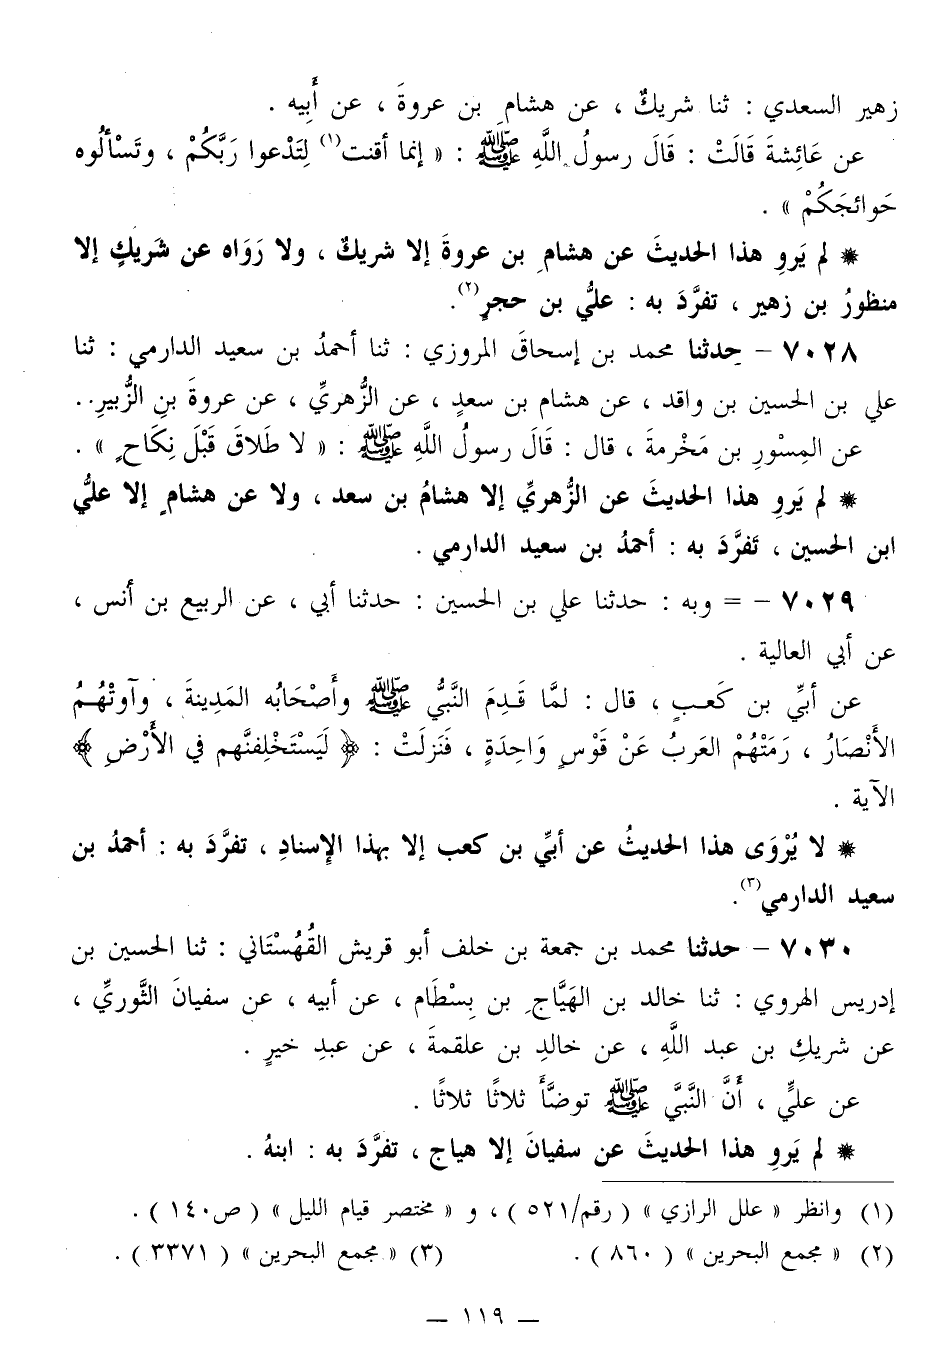 زهير السعدي : ثنا شريكٌ ، عن هشامِ بن عروةَ ، عن أَبِيه .
عن عَائِشةَ قَالَتْ : قَالَ رسولُ اللَّهِ ﷺ : « إنما أقنت(١) لِتَدْعوا رَبَّكُمْ ، وتَسْألُوه
حَوائجَكُمْ » .
* لم يَروِ هذا الحديثَ عن هشامِ بن عروةَ إلا شريكٌ ، ولا رَوَاه عن شَريكٍ إلا
منظورُ بن زهير ، تفرَّدَ به : عليُّ بن حجرٍ(٢).
٧٠٢٨ – حدثنا محمد بن إسحاقَ المروزي : ثنا أحمدُ بن سعيد الدارمي : ثنا
علي بن الحسين بن واقد ، عن هشام بن سعدٍ ، عن الزُّهريِّ ، عن عروةَ بنِ الزُّبيرِ..
عن المِسْورِ بن مَخْرمةَ ، قال : قَالَ رسولُ اللَّهِ ﷺ : « لا طَلاقَ قَبْلَ نِكَاحٍ » .
* لم يَروِ هذا الحديثَ عن الزُّهريِّ إلا هشامُ بن سعد ، ولا عن هشامٍ إلا عليُّ
ابن الحسين ، تَفرَّدَ به : أحمدُ بن سعيد الدارمي .
٧٠٢٩ – = وبه : حدثنا علي بن الحسين : حدثنا أبي ، عن الربيع بن أنس ،
عن أبي العالية .
عن أبيِّ بن كَعبٍ ، قال : لمَّا قَدِمَ النَّبيُّ ﷺ وأَصْحَابُه المَدِينةَ ، وآوتْهُمُ
الأَنْصَارُ ، رَمَتْهُمْ العَربُ عَنْ قَوْسٍ وَاحِدَةٍ ، فَنَزلَتْ : ﴿ لَيَسْتَخْلِفنَّهم في الأَرْضِ ﴾
الآية .
* لا يُرْوَى هذا الحديثُ عن أبيِّ بن كعب إلا بهذا الإسنادِ ، تفرَّدَ به : أحمدُ بن
سعيد الدارمي(٣).
٧٠٣٠ – حدثنا محمد بن جمعة بن خلف أبو قريش القُهُسْتَاني : ثنا الحسين بن
إدريس الهروي : ثنا خالد بن الهَيَّاجِ بن بِسْطَام ، عن أبيه ، عن سفيانَ الثَّوريِّ ،
عن شريكِ بن عبد اللَّهِ ، عن خالدِ بن علقمةَ ، عن عبدِ خيرٍ .
عن عليٍّ ، أَنَّ النَّبيَّ ﷺ توضَّأَ ثلاثًا ثلاثًا .
* لم يَروِ هذا الحديثَ عن سفيانَ إلا هياج ، تفرَّدَ به : ابنهُ .
(١) وانظر « علل الرازي » ( رقم/٥٢١ ) ، و « مختصر قيام الليل » ( ص١٤٠ ) .
(٢) « مجمع البحرين » ( ٨٦٠ ) . (٣) « مجمع البحرين » ( ٣٣٧١ ) .
— ١١٩ —